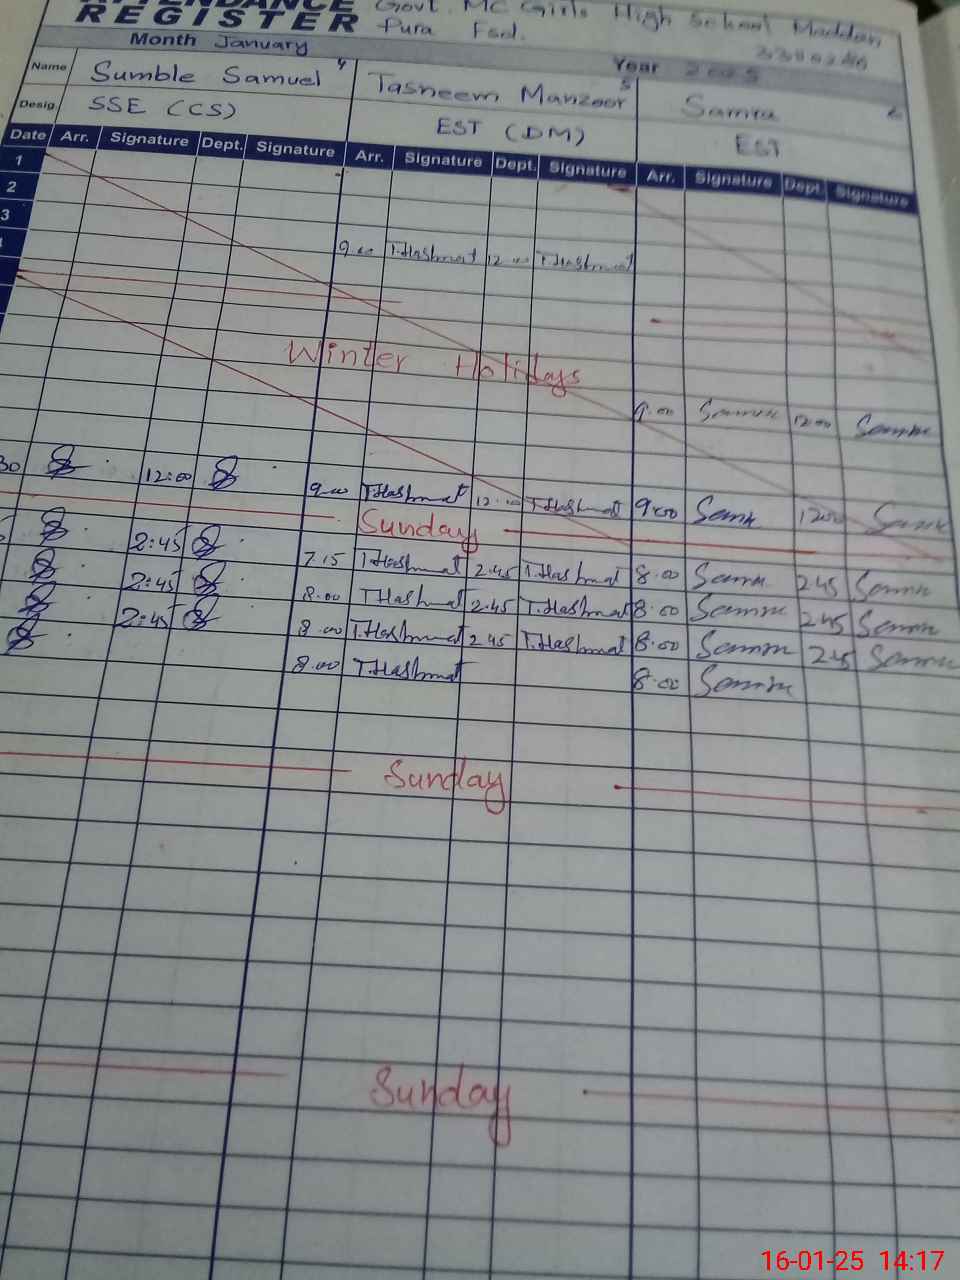 ATTENDANCE REGISTER Govt. MC Girls High School Maddan
Pura Fsd.
Month January Year 2025
Name Sumble Samuel 4 Tasneem Manzoor 5 Samra 6
Desig. SSE (CS) EST (DM) EST
Date Arr. Signature Dept. Signature Arr. Signature Dept. Signature Arr. Signature Dept. Signature
1
2
3
9.00 T.Hashmat 12.00 T.Hashmat
Winter Holidays
9.00 12.00
12:00 9.00 T.Hashmat 12.00 T.Hashmat 9.00 12.00
Sunday
2:45 7.15 T.Hashmat 2.45 T.Hashmat 8.00 2.45
2:45 8.00 T.Hashmat 2.45 T.Hashmat 8.00 2.45
2:45 8.00 T.Hashmat 2.45 T.Hashmat 8.00 2.45
8.00 T.Hashmat 8.00
Sunday
Sunday
16-01-25 14:17